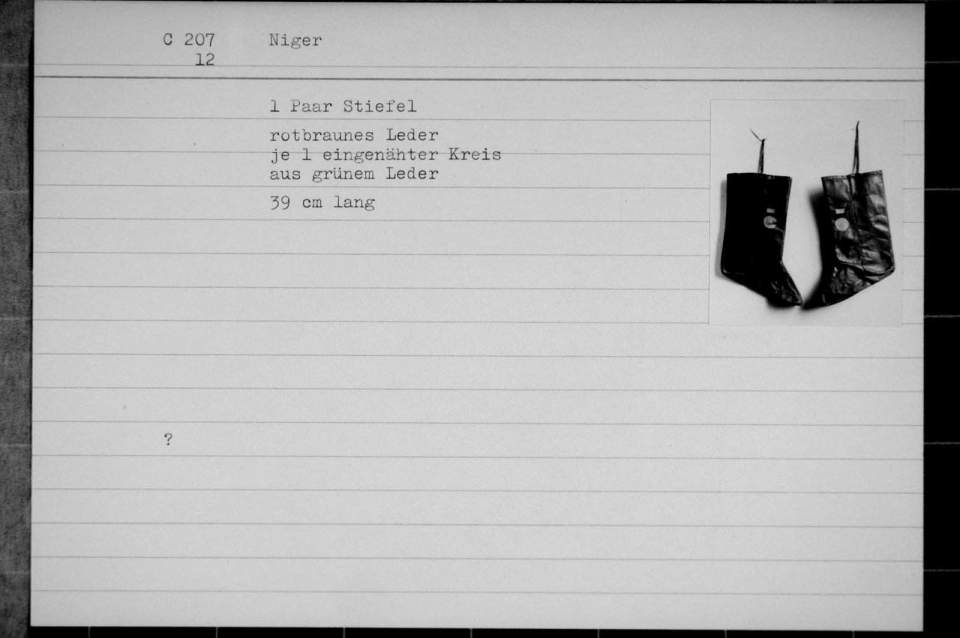 C 207 Niger
12
1 Paar Stiefel
rotbraunes Leder
je 1 eingenähter Kreis
aus grünem Leder
39 cm lang
?